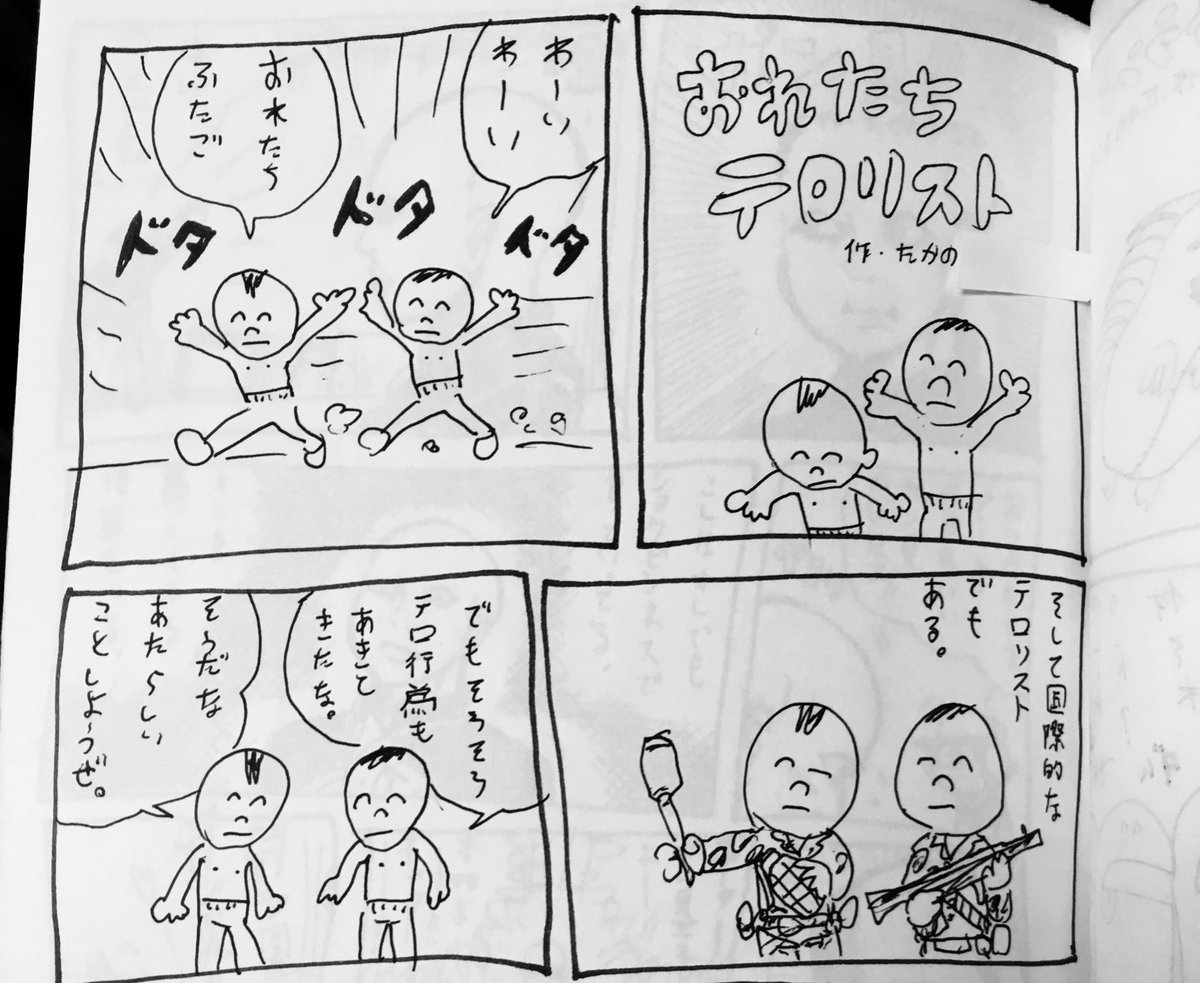 おれたち
テロリスト
作・たかの
わーい
わーい
おれたち
ふたご
ドタ
ドタ
ドタ
そして国際的な
テロリスト
でも
ある。
でもそろそろ
テロ行為も
あきて
きたな。
そうだな
あたらしい
ことしよーぜ。